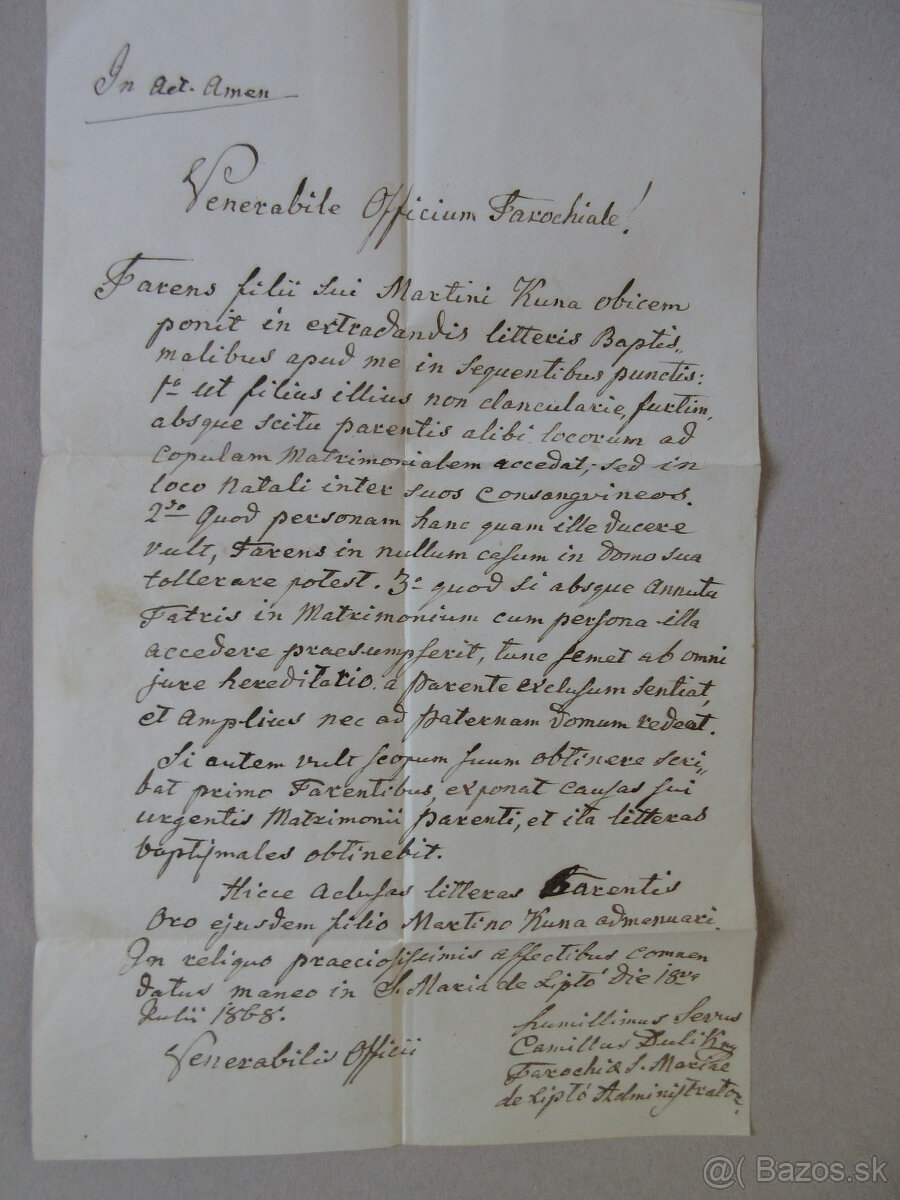 In Aet. Amen
Venerabile Officium Parochiale!
Parens filii sui Martini Kuna obicem
ponit in extradandis litteris Baptis„
malibus apud me in sequentibus punctis:
1o ut filius illius non clancularie, furtim,
absque scitu parentis alibi locorum ad
copulam Matrimonialem accedat, sed in
loco Natali inter suos Consangvineos.
2do Quod personam hanc quam ille ducere
vult, Parens in nullum casum in domo sua
tollerare potest. 3o quod si absque Annutu
Patris in Matrimonium cum persona illa
accedere praesumpserit, tunc semet ab omni
jure hereditario a Parente exclusum sentiat,
et amplius nec ad paternam domum redeat.
Si autem vult scopum suum obtinere scri„
bat primo Parentibus, exponat causas sui
urgentis Matrimonii Parenti, et ita litteras
baptysmales obtinebit.
Hicce aclusas litteras Parentis
Oro ejusdem filio Martino Kuna admenuari.
In reliquo praeciosissimis affectibus commen
datus maneo in S. Maria de Liptó die 18va
Julii 1868.
Venerabilis Officii
humillimus Servus
Camillus Dulik
Parochiae S. Mariae
de Liptó Administrator.
@( Bazos.sk